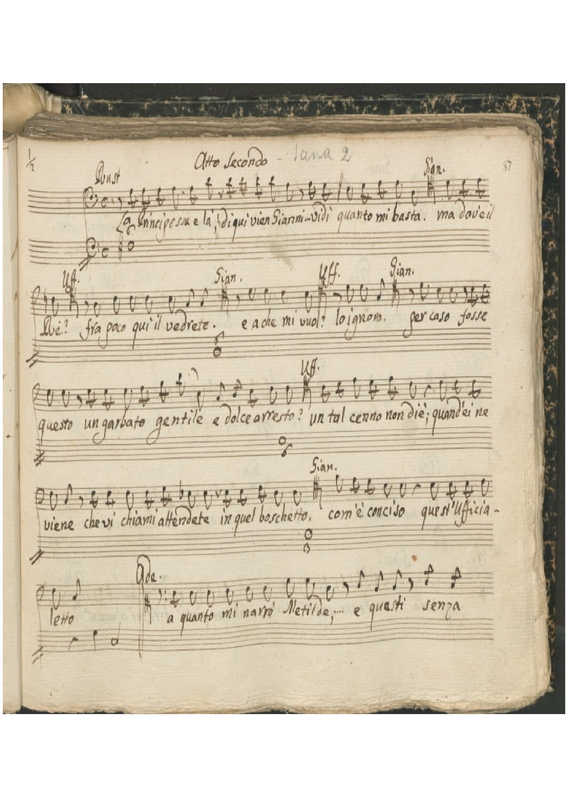 1/2
Atto Secondo - Scena 2
57
Gian.
La Principessa e la; di qui vien Gianni - vidi quanto mi basta. ma dov'è il
Uff. Gian. Uff. Gian.
Duc? fra poco qui il vedrete. e a che mi vuol? lo ignoro. per caso fosse
Uff.
questo un garbato gentile e dolce arresto? un tal cenno non diè; quand'ei ne
Gian.
viene che vi chiami attendete in quel boschetto. com'è conciso quest'Ufficia-
Ade.
letto a quanto mi narrò Metilde;.... e questi senza